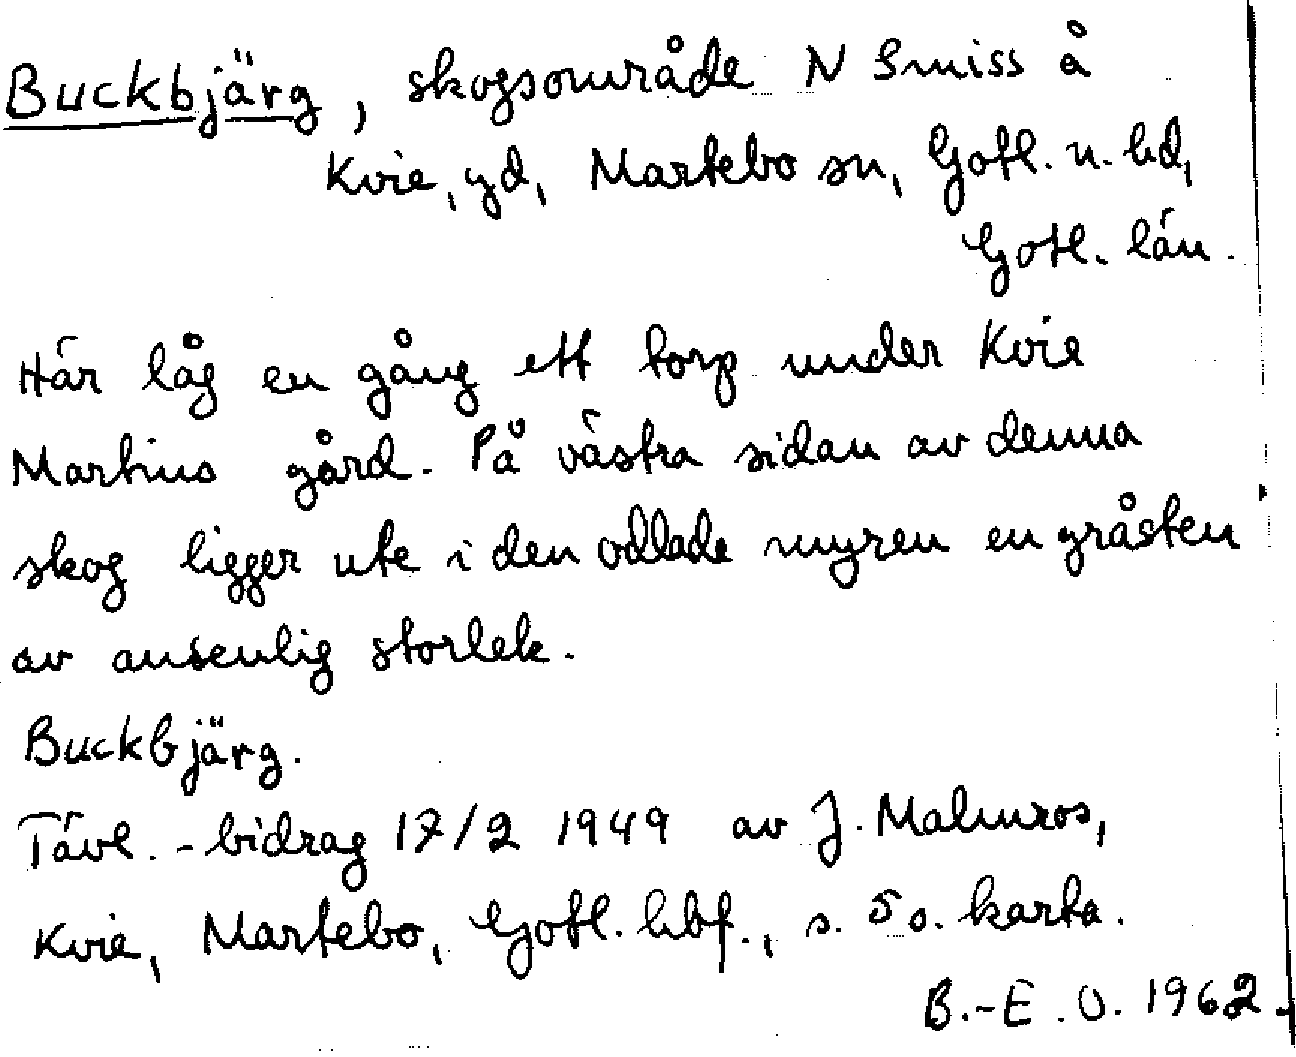 Buckbjärg, skogsområde N Smiss å
Kvie, gd, Martebo sn, Gotl. n. hd,
Gotl. län.
Här låg en gång ett torp under Kvie
Martins gård. På västra sidan av denna
skog ligger ute i den odlade myren en gråsten
av ansenlig storlek.
Buckbjärg.
Tävl.-bidrag 17/2 1949 av J. Malmros,
Kvie, Martebo, Gotl. hbf., s. 5 o. karta.
B.-E. O. 1962.